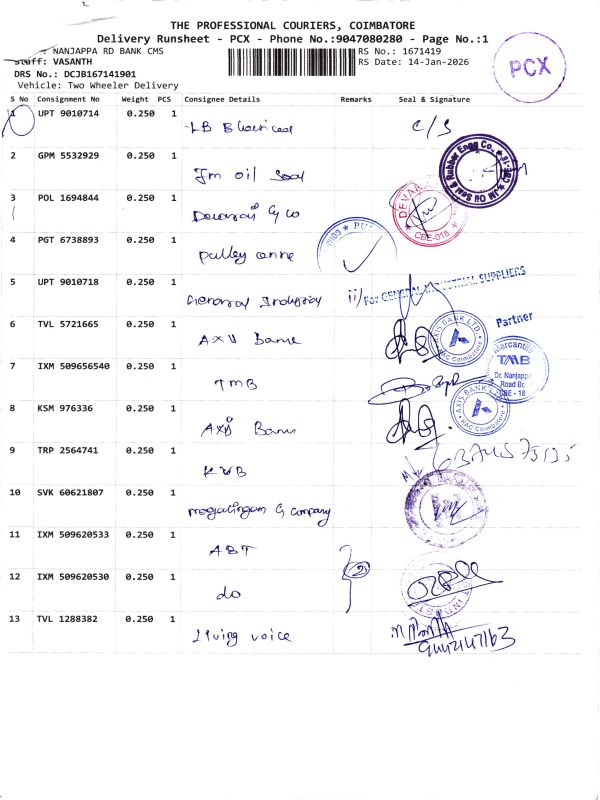 THE PROFESSIONAL COURIERS, COIMBATORE
Delivery Runsheet - PCX - Phone No.:9047080280 - Page No.:1
: NANJAPPA RD BANK CMS
RS No.: 1671419
Staff: VASANTH
RS Date: 14-Jan-2026
DRS No.: DCJB167141901
Vehicle: Two Wheeler Delivery
PCX
S No Consignment No Weight PCS Consignee Details Remarks Seal & Signature
1 UPT 9010714 0.250 1 LB C/S
2 GPM 5532929 0.250 1 Jm oil Seal
JM Oil Seal & Rubber Engg Co.,
3 POL 1694844 0.250 1 & Co
CBE-018
4 PGT 6738893 0.250 1 Pulley
5 UPT 9010718 0.250 1 General Industrial
For GENERAL INDUSTRIAL SUPPLIERS
Partner
6 TVL 5721665 0.250 1
AXIS BANK LTD.
RAC Coimbatore
7 IXM 509656540 0.250 1 TMB
Mercantile
TMB
Dr. Nanjappa
Road Br.
CBE - 18
8 KSM 976336 0.250 1
AXIS BANK LTD.
RAC Coimbatore
9 TRP 2564741 0.250 1 KVB
10 SVK 60621807 0.250 1 & Company
11 IXM 509620533 0.250 1 ABT
12 IXM 509620530 0.250 1 do
13 TVL 1288382 0.250 1 Living voice